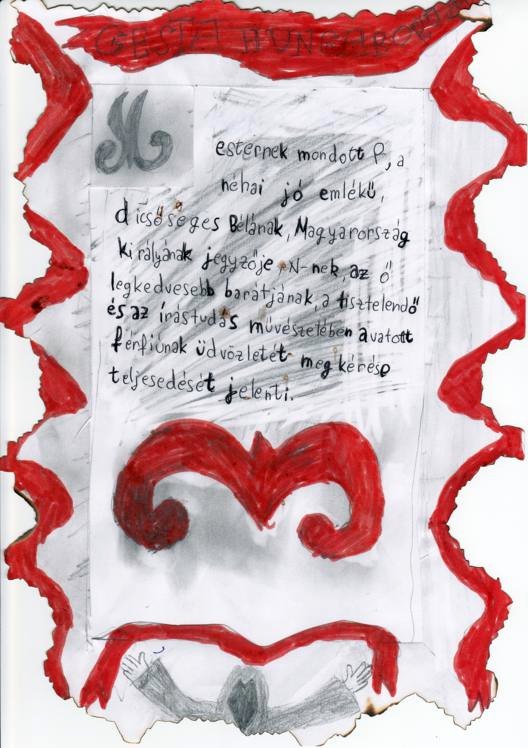 GESTA HUNGARORUM
M
esternek mondott P, a
néhai jó emlékű,
dicsőséges Bélának, Magyarország
királyának jegyzője N-nek, az ő
legkedvesebb barátjának, a tisztelendő
és az írástudás művészetében avatott
férfiúnak üdvözletét megkérése
teljesedését jelenti.